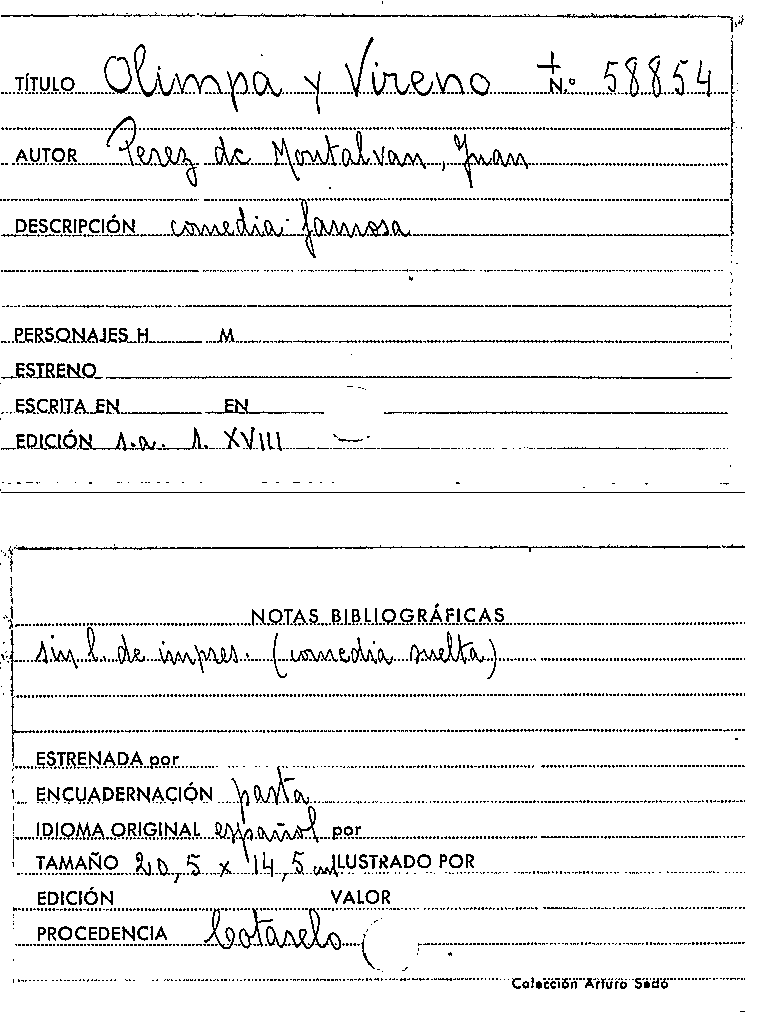 TÍTULO Olimpa y Vireno + N.º 58854
AUTOR Perez de Montalvan, Juan
DESCRIPCIÓN comedia famosa
PERSONAJES H M
ESTRENO
ESCRITA EN EN
EDICIÓN s.a. s. XVIII
NOTAS BIBLIOGRÁFICAS
sin l. de impres. (comedia suelta)
ESTRENADA por
ENCUADERNACIÓN pasta
IDIOMA ORIGINAL español por
TAMAÑO 20,5 x 14,5 cm ILUSTRADO POR
EDICIÓN VALOR
PROCEDENCIA Cotarelo
Colección Arturo Sedó